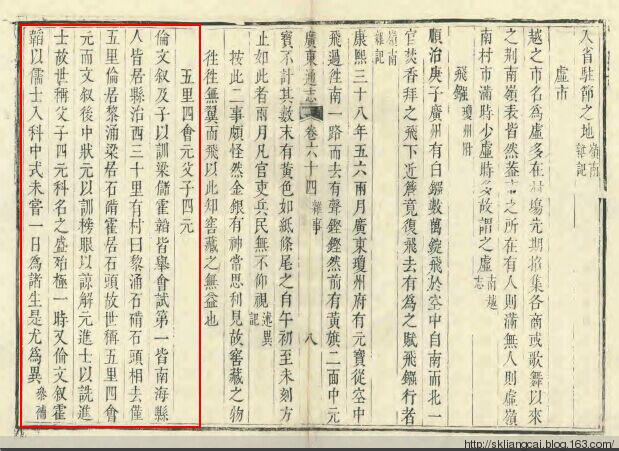 入省駐節之地嶺南雜記
虛市
越之市名爲虛多在村場先期招集各商或歌舞以來
之荆南嶺表皆然蓋市之所在有人則滿無人則虛嶺
南村市滿時少虛時多故謂之虛南越志
飛鏹瓊州附
順治庚子廣州有白鏹數萬錠飛於空中自南而北一
官焚香拜之飛下近簷竟復飛去有爲之賦飛鏹行者
嶺南雜記
康熙三十八年五六兩月廣東瓊州府有元寶從空中
飛過徃南一路而去有聲鏗鏗然前有黃旗二面中元
廣東通志 卷六十四 雜事 八
寶不計其數末有黃色如紙條尾之自午初至未刻方
止如此者兩月凡官吏兵民無不仰視述異記
按此二事頗怪然金銀有神常思利見故窖藏之物
徃徃無翼而飛以此知窖藏之無益也
五里四會元父子四元
倫文叙及子以訓梁儲霍韜皆舉會試第一皆南海縣
人皆居縣治西三十里有村曰黎涌石碃石頭相去僅
五里倫居黎涌梁居石碃霍居石頭故世稱五里四會
元而文叙後中狀元以訓榜眼以諒解元進士以詵進
士故世稱父子四元科名之盛殆極一時又倫文叙霍
韜以儒士入科中式未嘗一日爲諸生是尤爲異參補
http://skliangcai.blog.163.com/